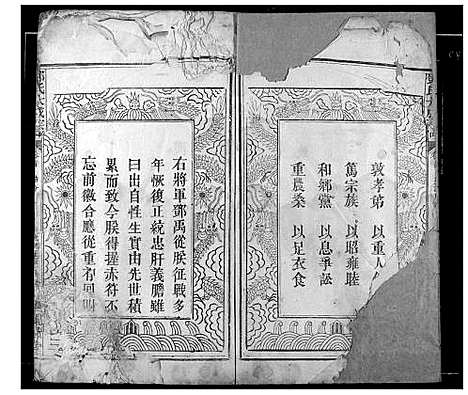 敦孝弟 以重人
篤宗族 以昭雍睦
和鄉黨 以息爭訟
重農桑 以足衣食
右將軍鄧禹從朕征戰多
年恢復正統忠肝義膽雖
曰出自性生實由先世積
累而致今朕得握赤符不
忘前徽合應從重